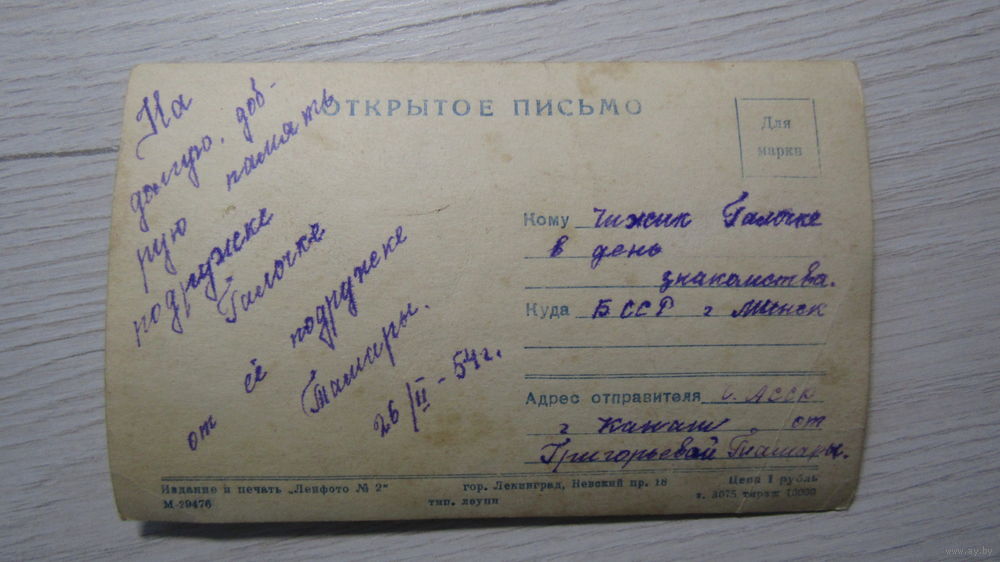 ОТКРЫТОЕ ПИСЬМО
Для
марки
На
долгую, доб-
рую память
подружке
Галочке
от её подружске
Тамары.
26/II - 54 г.
Кому Чижик Галочке
в день
знакомства.
Куда БССР г Минск
Адрес отправителя АССР
г Канаш от
Григорьевой Тамары.
Издание и печать „Ленфото № 2" гор. Ленинград, Невский пр. 18 Цена 1 рубль
М-29476 тип. лоупп з. 3075 тираж 10000
www.ay.by